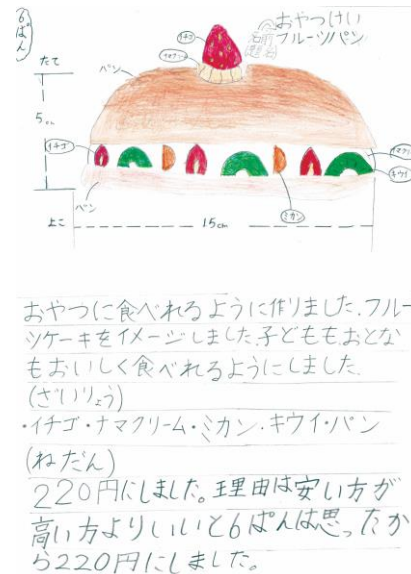 6ぱん
おやつけい
フルーツパン
イチゴ
ナマクリーム
パン
たて
5cm
イチゴ
ナマクリーム
キウイ
パン
ミカン
よこ
15cm
おやつに食べれるように作りました。フルー
ツケーキをイメージしました。子どももおとな
もおいしく食べれるようにしました。
(ざいりょう)
・イチゴ・ナマクリーム・ミカン・キウイ・パン
(ねだん)
220円にしました。理由は安い方が
高い方よりいいと6ぱんは思ったか
ら220円にしました。